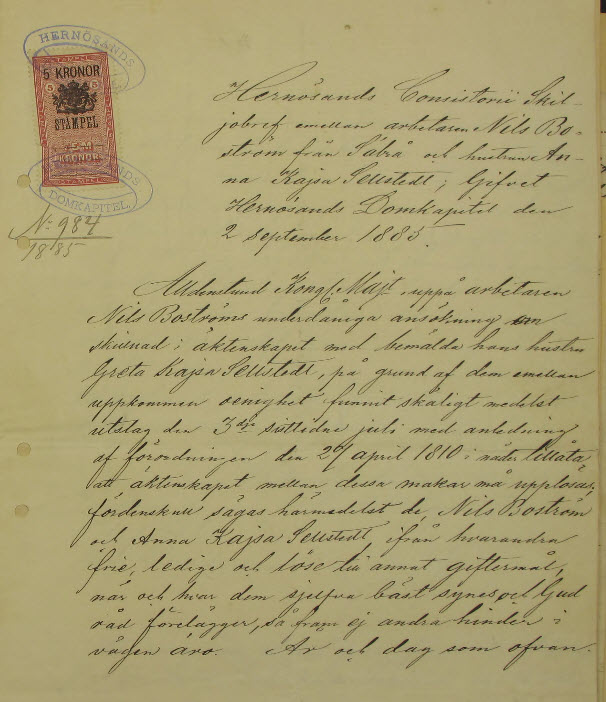 HERNÖSANDS
5 KRONOR
STÄMPEL
KRONOR
DOMKAPITEL
No 984
1885
Hernösands Consistorii Skil-
jobref emellan arbetaren Nils Bo-
ström från Säbrå och hustrun An-
na Kajsa Sellstedt; Gifvet
Hernösands Domkapitel den
2 September 1885.
Alldenstund Kongl. Majt uppå arbetaren
Nils Boströms underdåniga ansökning om
skilnad i äktenskapet med bemälda hans hustru
Greta Kajsa Sellstedt, på grund af dem emellan
uppkommen oenighet funnit skäligt medelst
utslag den 3dje sistlidne juli med anledning
af förordningen den 26 april 1810 i nåder tillåta
att äktenskapet mellan dessa makar må upplösas;
fördenskull sägas härmedelst de, Nils Boström
och Anna Kajsa Sellstedt, ifrån hvarandra
frie, ledige och löse till annat giftermål,
när och hvar dem sjelfva bäst synes och Gud
råd förelägger, så fram ej andra hinder i
vägen äro. År och dag som ofvan.